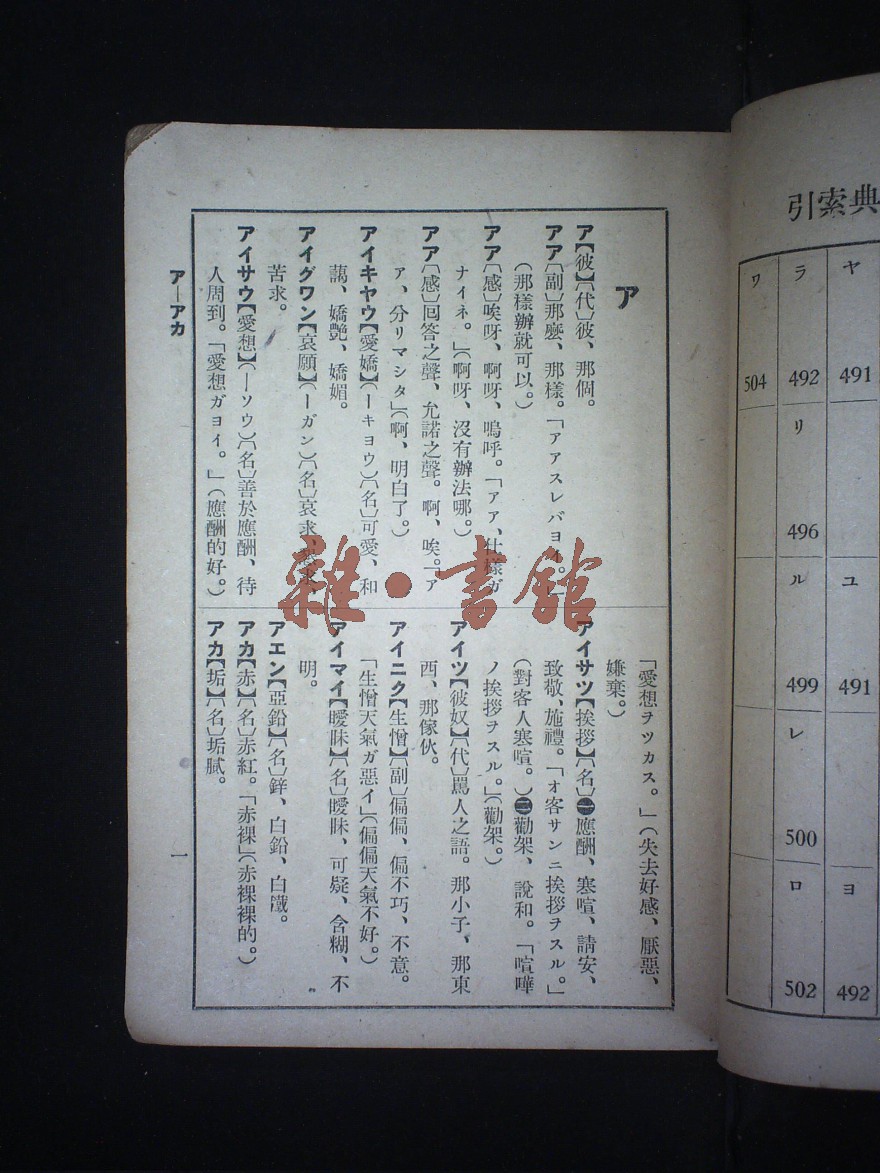 引索典
ヤ
ラ
ワ
491
492
504
リ
496
ユ
ル
491
499
レ
500
ヨ
ロ
492
502
ア
ア【彼】〔代〕彼、那個。
アア〔副〕那麽、那樣。「アアスレバヨイ。」
(那樣辦就可以。)
アア〔感〕唉呀、啊呀、嗚呼。「アア、仕樣ガ
ナイネ。」(啊呀、沒有辦法哪。)
アア〔感〕回答之聲、允諾之聲。啊、唉。「ア
ア、分リマシタ」(啊、明白了。)
アイキヤウ【愛嬌】(―キョウ)〔名〕可愛、和
藹、嬌艷、嬌媚。
アイグワン【哀願】(―ガン)〔名〕哀求、
苦求。
アイサウ【愛想】(―ソウ)〔名〕善於應酬、待
人周到。「愛想ガヨイ。」(應酬的好。)
「愛想ヲツカス。」(失去好感、厭惡、
嫌棄。)
アイサツ【挨拶】〔名〕㊀應酬、寒喧、請安、
致敬、施禮。「オ客サンニ挨拶ヲスル。」
(對客人寒喧。)㊁勸架、說和。「喧嘩
ノ挨拶ヲスル。」(勸架。)
アイツ【彼奴】〔代〕罵人之語。那小子、那東
西、那傢伙。
アイニク【生憎】〔副〕偏偏、偏不巧、不意。
「生憎天氣ガ惡イ」(偏偏天氣不好。)
アイマイ【曖昧】〔名〕曖昧、可疑、含糊、不
明。
アエン【亞鉛】〔名〕鋅、白鉛、白鐵。
アカ【赤】〔名〕赤紅。「赤裸」(赤裸裸的。)
アカ【垢】〔名〕垢膩。
ア―アカ
一
雜・書館